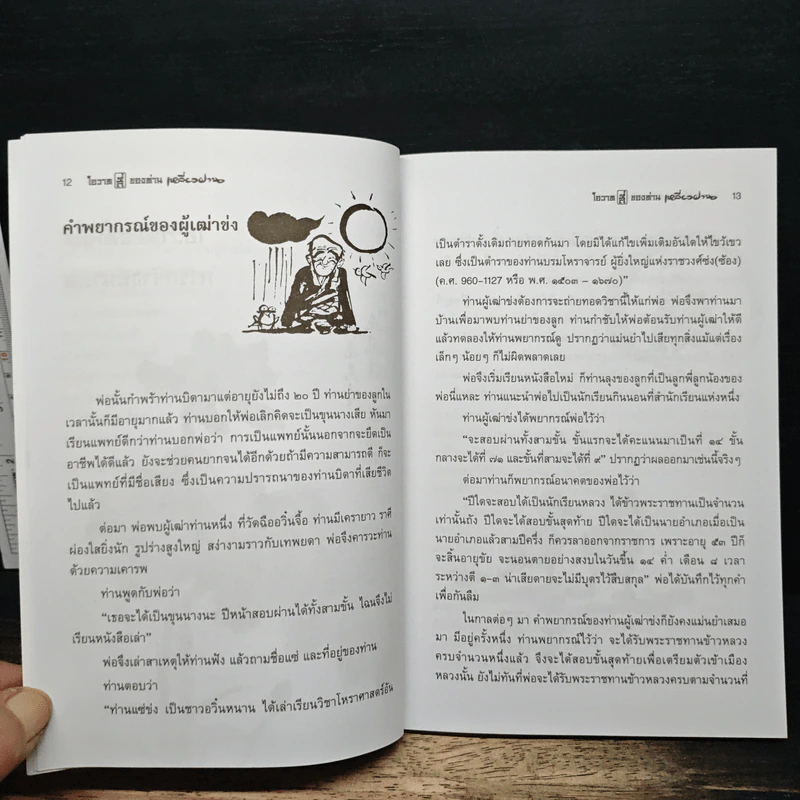 12 โอวาท สี่ ของท่าน เหลี่ยวฝาน
คำพยากรณ์ของผู้เฒ่าข่ง
พ่อนั้นกำพร้าท่านบิดามาแต่อายุยังไม่ถึง ๒๐ ปี ท่านย่าของลูกใน
เวลานั้นก็มีอายุมากแล้ว ท่านบอกให้พ่อเลิกคิดจะเป็นขุนนางเสีย หันมา
เรียนแพทย์ดีกว่าท่านบอกพ่อว่า การเป็นแพทย์นั้นนอกจากจะยึดเป็น
อาชีพได้ดีแล้ว ยังจะช่วยคนยากจนได้อีกด้วยถ้ามีความสามารถดี ก็จะ
เป็นแพทย์ที่มีชื่อเสียง ซึ่งเป็นความปรารถนาของท่านบิดาที่เสียชีวิต
ไปแล้ว
ต่อมา พ่อพบผู้เฒ่าท่านหนึ่ง ที่วัดฉืออวิ๋นจี้อ ท่านมีเครายาว ราศี
ผ่องใสยิ่งนัก รูปร่างสูงใหญ่ สง่างามราวกับเทพยดา พ่อจึงคารวะท่าน
ด้วยความเคารพ
ท่านพูดกับพ่อว่า
“เธอจะได้เป็นขุนนางนะ ปีหน้าสอบผ่านได้ทั้งสามขั้น ไฉนจึงไม่
เรียนหนังสือเล่า”
พ่อจึงเล่าสาเหตุให้ท่านฟัง แล้วถามชื่อแซ่ และที่อยู่ของท่าน
ท่านตอบว่า
“ท่านแซ่ข่ง เป็นชาวอวิ๋นหนาน ได้เล่าเรียนวิชาโหราศาสตร์อัน
โอวาท สี่ ของท่าน เหลี่ยวฝาน 13
เป็นตำราดั้งเดิมถ่ายทอดกันมา โดยมิได้แก้ไขเพิ่มเติมอันใดให้ไขว้เขว
เลย ซึ่งเป็นตำราของท่านบรมโหราจารย์ ผู้ยิ่งใหญ่แห่งราชวงศ์ซ่ง(ซ้อง)
(ค.ศ. 960-1127 หรือ พ.ศ. ๑๕๐๓ – ๑๖๗๐)”
ท่านผู้เฒ่าข่งต้องการจะถ่ายทอดวิชานี้ให้แก่พ่อ พ่อจึงพาท่านมา
บ้านเพื่อมาพบท่านย่าของลูก ท่านกำชับให้พ่อต้อนรับท่านผู้เฒ่าให้ดี
แล้วทดลองให้ท่านพยากรณ์ดู ปรากฏว่าแม่นยำไปเสียทุกสิ่งแม้แต่เรื่อง
เล็กๆ น้อยๆ ก็ไม่ผิดพลาดเลย
พ่อจึงเริ่มเรียนหนังสือใหม่ ก็ท่านลุงของลูกที่เป็นลูกพี่ลูกน้องของ
พ่อนี่แหละ ท่านแนะนำพ่อไปเป็นนักเรียนกินนอนที่สำนักเรียนแห่งหนึ่ง
ท่านผู้เฒ่าข่งได้พยากรณ์พ่อไว้ว่า
“จะสอบผ่านทั้งสามขั้น ขั้นแรกจะได้คะแนนมาเป็นที่ ๑๔ ขั้น
กลางจะได้ที่ ๗๑ และขั้นที่สามจะได้ที่ ๙” ปรากฏว่าผลออกมาเช่นนี้จริงๆ
ต่อมาท่านก็พยากรณ์อนาคตของพ่อไว้ว่า
“ปีใดจะสอบได้เป็นนักเรียนหลวง ได้ข้าวพระราชทานเป็นจำนวน
เท่านั้นถัง ปีใดจะได้สอบขั้นสุดท้าย ปีใดจะได้เป็นนายอำเภอเมื่อเป็น
นายอำเภอแล้วสามปีครึ่ง ก็ควรลาออกจากราชการ เพราะอายุ ๕๓ ปีก็
จะสิ้นอายุขัย จะนอนตายอย่างสงบในวันขึ้น ๑๔ ค่ำ เดือน ๘ เวลา
ระหว่างตี ๑-๓ น่าเสียดายจะไม่มีบุตรไว้สืบสกุล” พ่อได้บันทึกไว้ทุกคำ
เพื่อกันลืม
ในกาลต่อๆ มา คำพยากรณ์ของท่านผู้เฒ่าข่งก็ยังคงแม่นยำเสมอ
มา มีอยู่ครั้งหนึ่ง ท่านพยากรณ์ไว้ว่า จะได้รับพระราชทานข้าวหลวง
ครบจำนวนหนึ่งแล้ว จึงจะได้สอบขั้นสุดท้ายเพื่อเตรียมตัวเข้าเมือง
หลวงนั้น ยังไม่ทันที่พ่อจะได้รับพระราชทานข้าวหลวงครบตามจำนวนที่